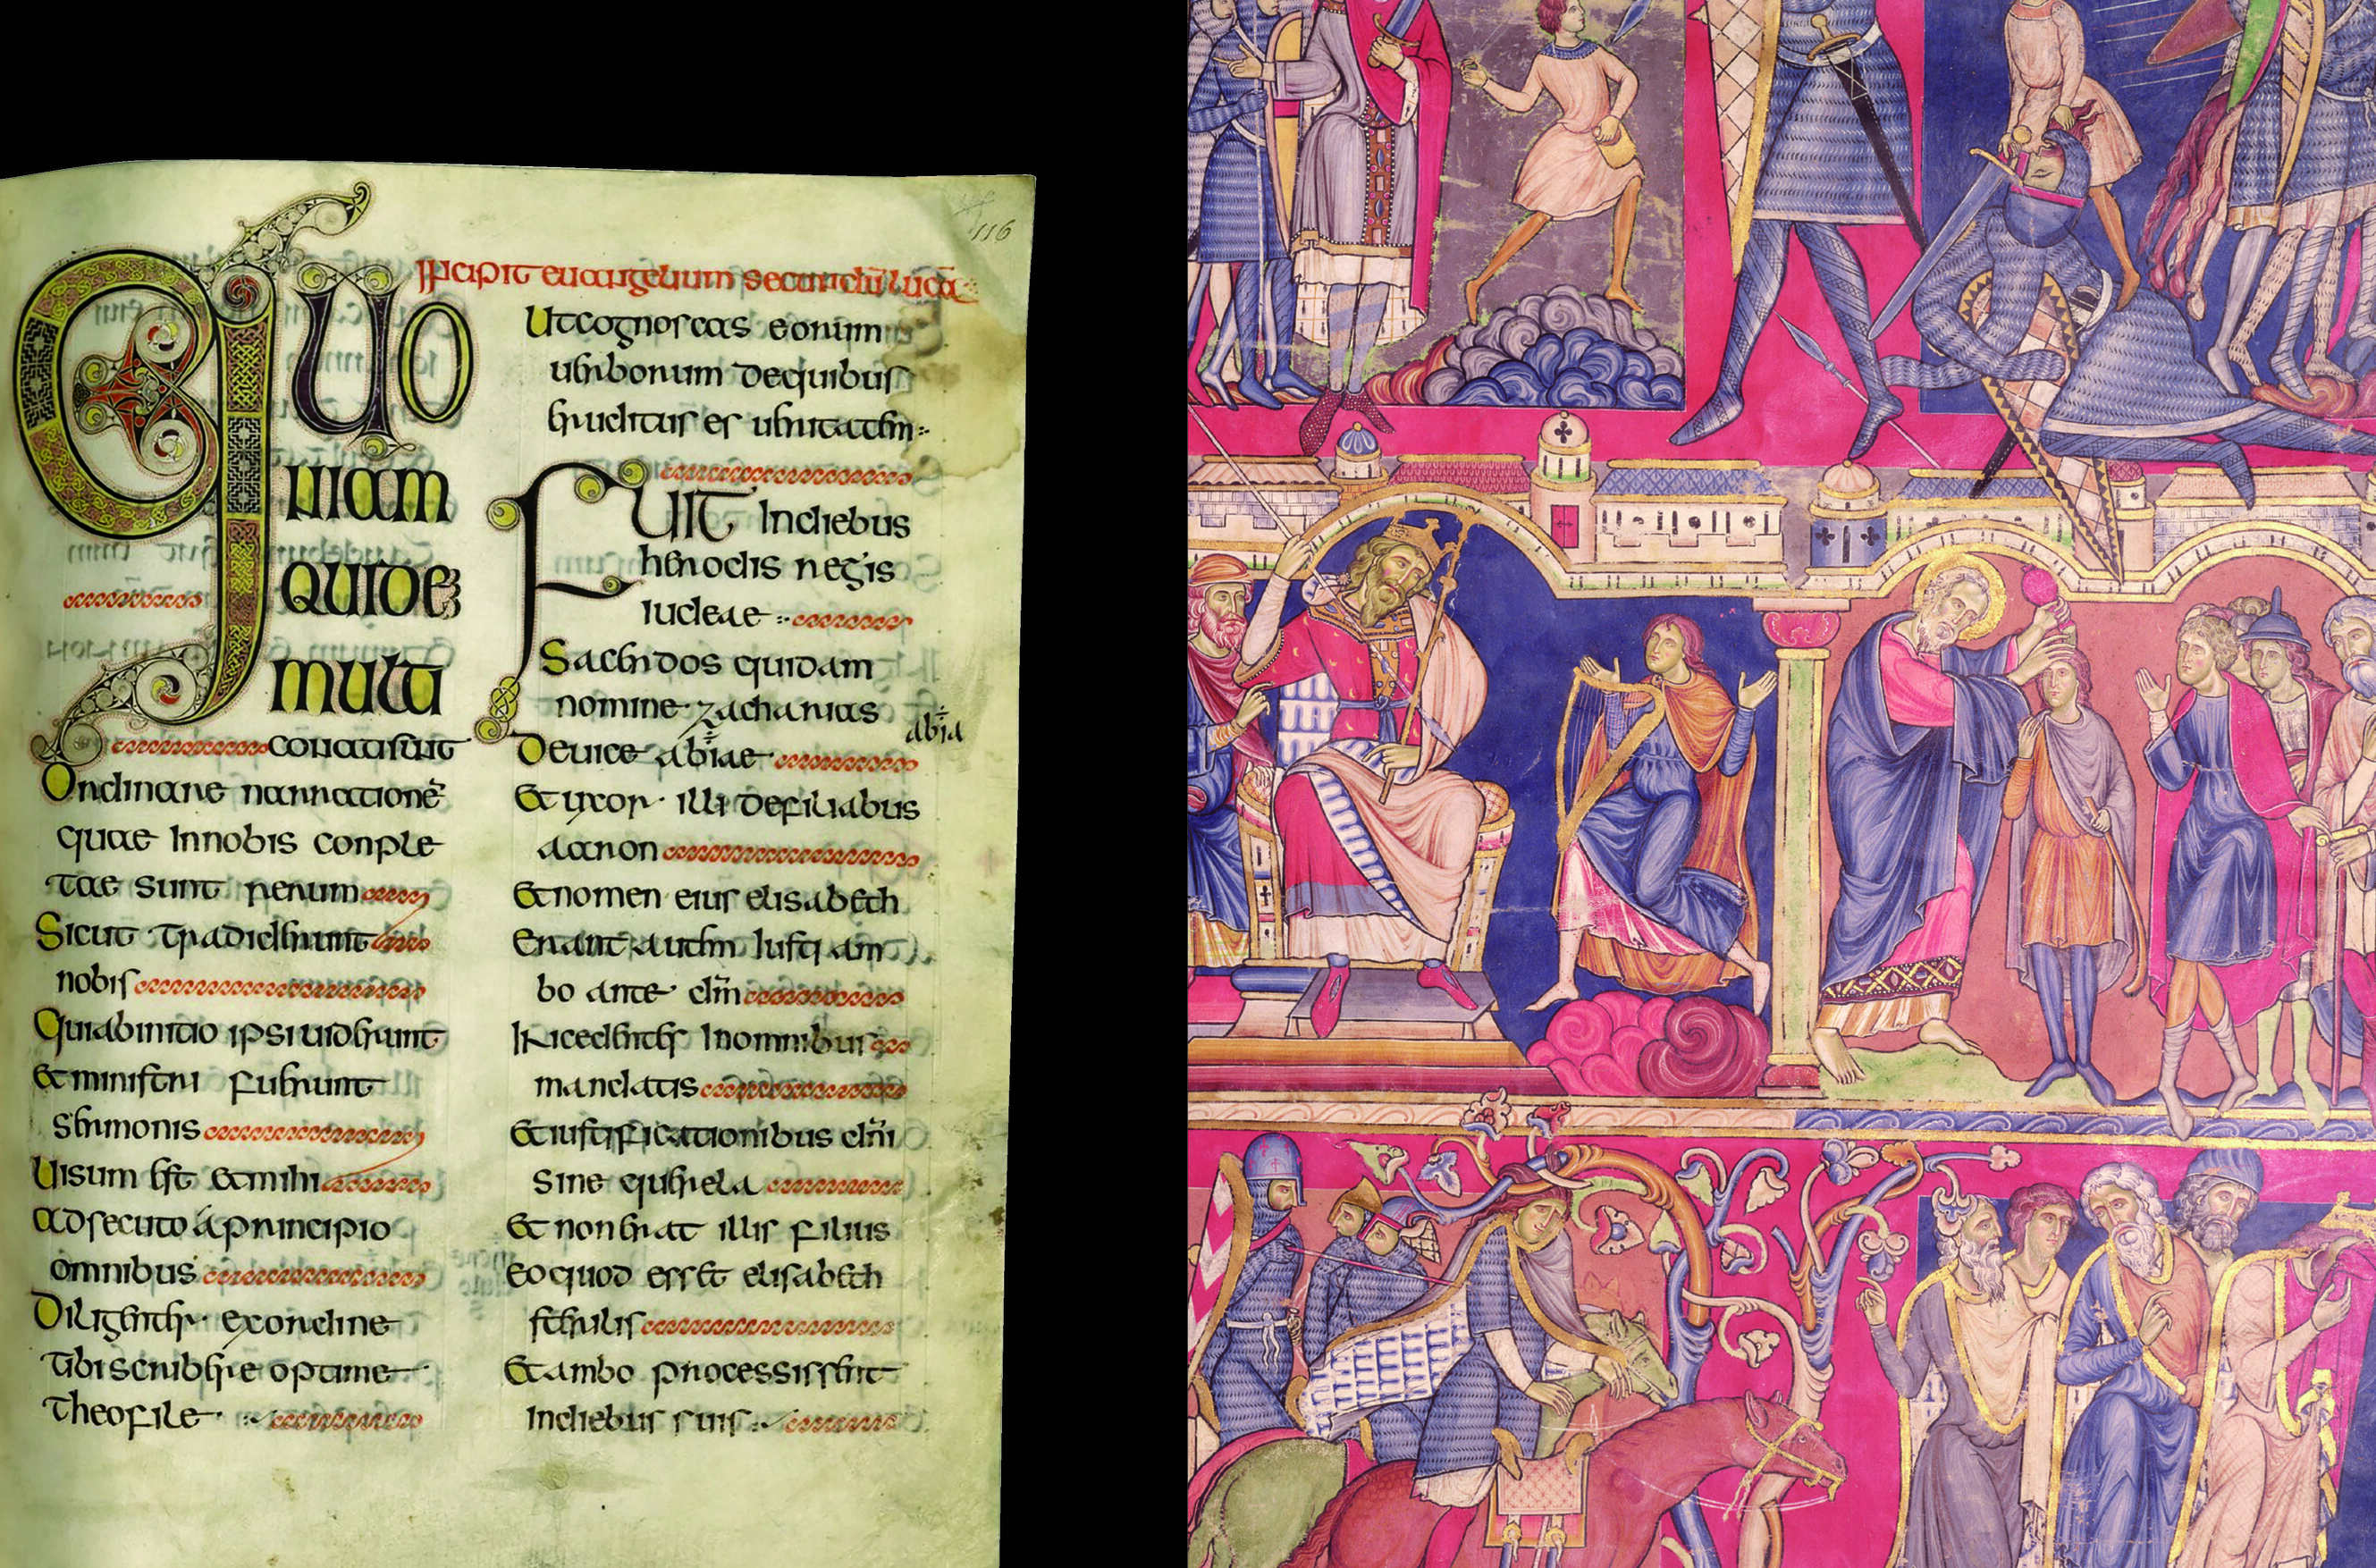 116
Incipit euangelium secundũ lucã
Quo
niam
quide
multi
conati sunt
Ordinare narrationẽ
quae In nobis conple
tae sunt rerum
Sicut tradiderunt
nobis
Qui ab initio ipsi uiderunt
Et ministri fuerunt
sermonis
Uisum est et mihi
adsecuto á principio
omnibus
Diligenter ex ordine
tibi scribere optime
theofile
Ut cognoscas eorum
uerborum de quibus
eruditus es ueritatem
Fuit In diebus
herodis regis
iudeae
Sacerdos quidam
nomine zacharias
De uice abiae
abia
Et uxor illi de filiabus
aaron
Et nomen eius elisabeth
Erant autem iusti am
bo ante dm̃
Incedentes In omnibus
mandatis
Et iustificationibus dm̃i
sine querela
Et non erat illis filius
eo quod esset elisabeth
sterilis
Et ambo processissent
In diebus suis